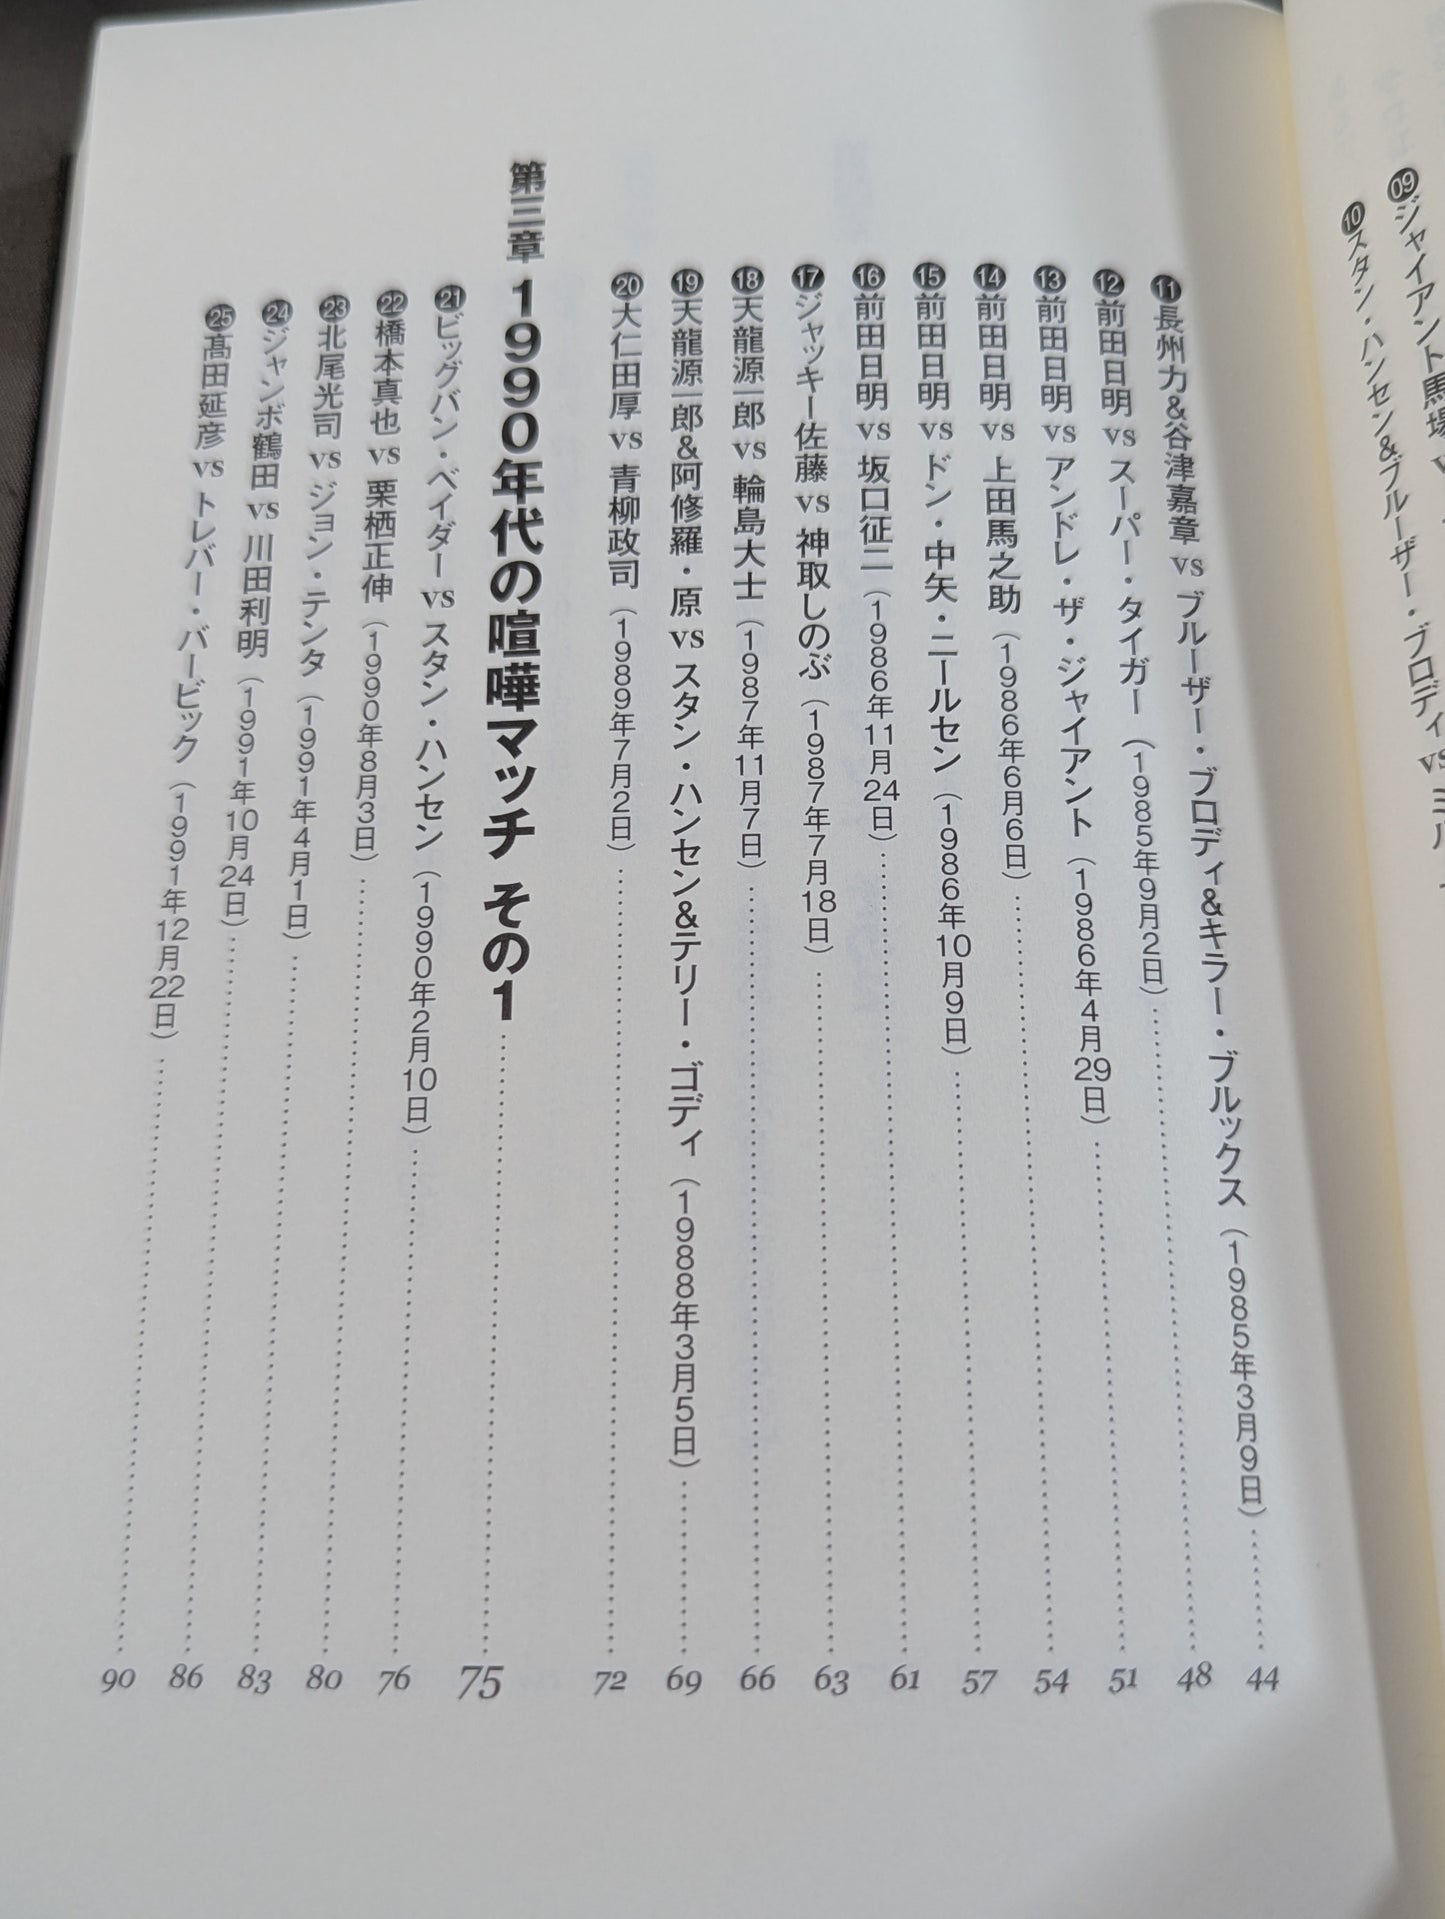 09ジャイアント馬場
10スタン・ハンセン&ブルーザー・ブロディ vs
11長州力&谷津嘉章 vs ブルーザー・ブロディ&キラー・ブルックス（1985年3月9日）…… 44
12前田日明 vs スーパー・タイガー（1985年9月2日）…… 48
13前田日明 vs アンドレ・ザ・ジャイアント（1986年4月29日）…… 51
14前田日明 vs 上田馬之助（1986年6月6日）…… 54
15前田日明 vs ドン・中矢・ニールセン（1986年10月9日）…… 57
16前田日明 vs 坂口征二（1986年11月24日）…… 61
17ジャッキー佐藤 vs 神取しのぶ（1987年7月18日）…… 63
18天龍源一郎 vs 輪島大士（1987年11月7日）…… 66
19天龍源一郎&阿修羅・原 vs スタン・ハンセン&テリー・ゴディ（1988年3月5日）…… 69
20大仁田厚 vs 青柳政司（1989年7月2日）…… 72
第三章 1990年代の喧嘩マッチ その1 …… 75
21ビッグバン・ベイダー vs スタン・ハンセン（1990年2月10日）…… 76
22橋本真也 vs 栗栖正伸（1990年8月3日）…… 80
23北尾光司 vs ジョン・テンタ（1991年4月1日）…… 83
24ジャンボ鶴田 vs 川田利明（1991年10月24日）…… 86
25髙田延彦 vs トレバー・バービック（1991年12月22日）…… 90